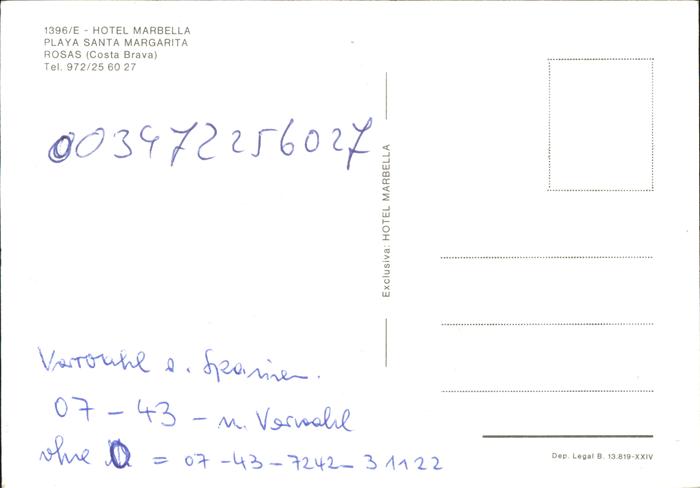 1396/E - HOTEL MARBELLA
PLAYA SANTA MARGARITA
ROSAS (Costa Brava)
Tel. 972/25 60 27
003472256027
Exclusiva: HOTEL MARBELLA
Vorwahl a. Spanien.
07 - 43 - n. Vorwahl
ohne 0 = 07 - 43 - 7242 - 31122
Dep. Legal B. 13.819-XXIV